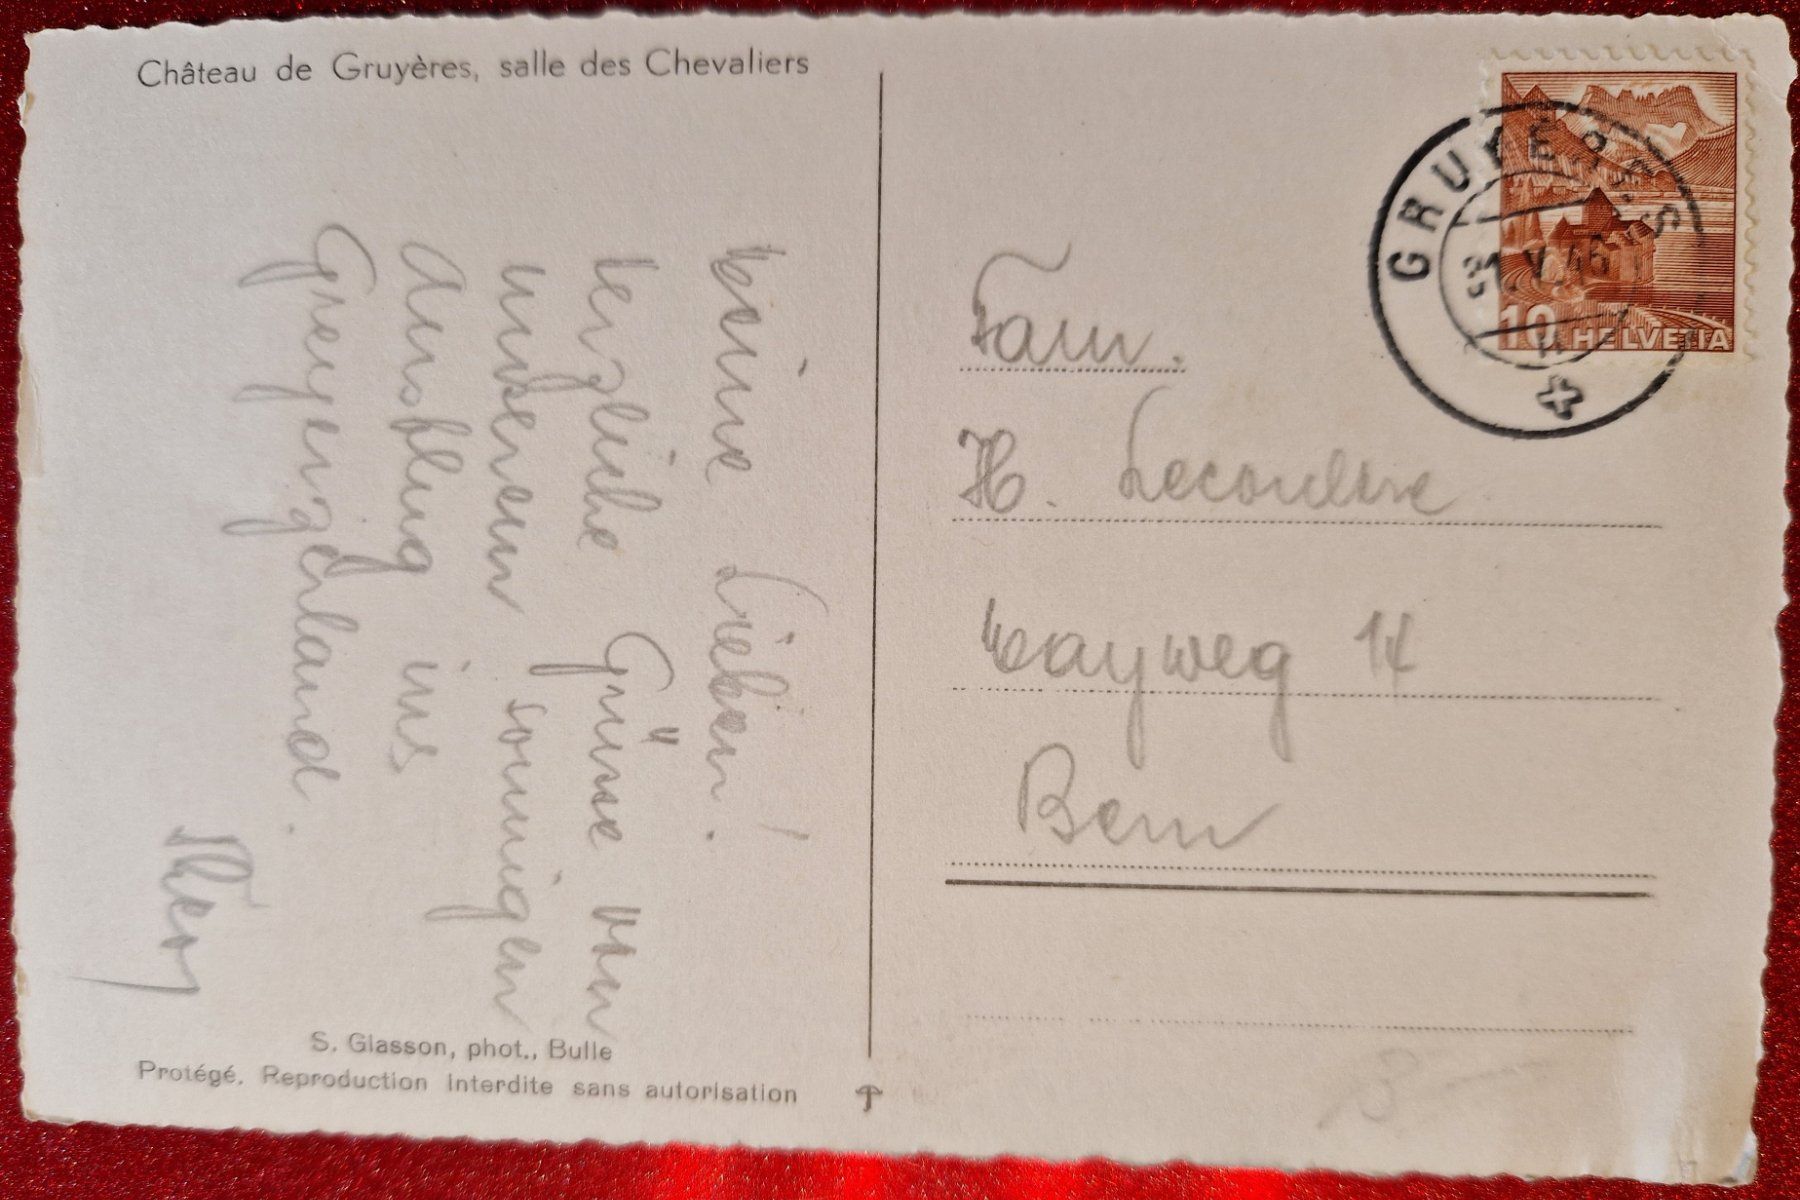 Château de Gruyères, salle des Chevaliers
Meine Lieben!
Herzliche Grüsse von
unserem sonnigen
Ausflug ins
Greyerzerland.
S. Glasson, phot., Bulle
Protégé. Reproduction interdite sans autorisation
GRUYÈRES
31.V.46
10 HELVETIA
Fam.
H. Lecoultre
Mayweg 14
Bern
3.—